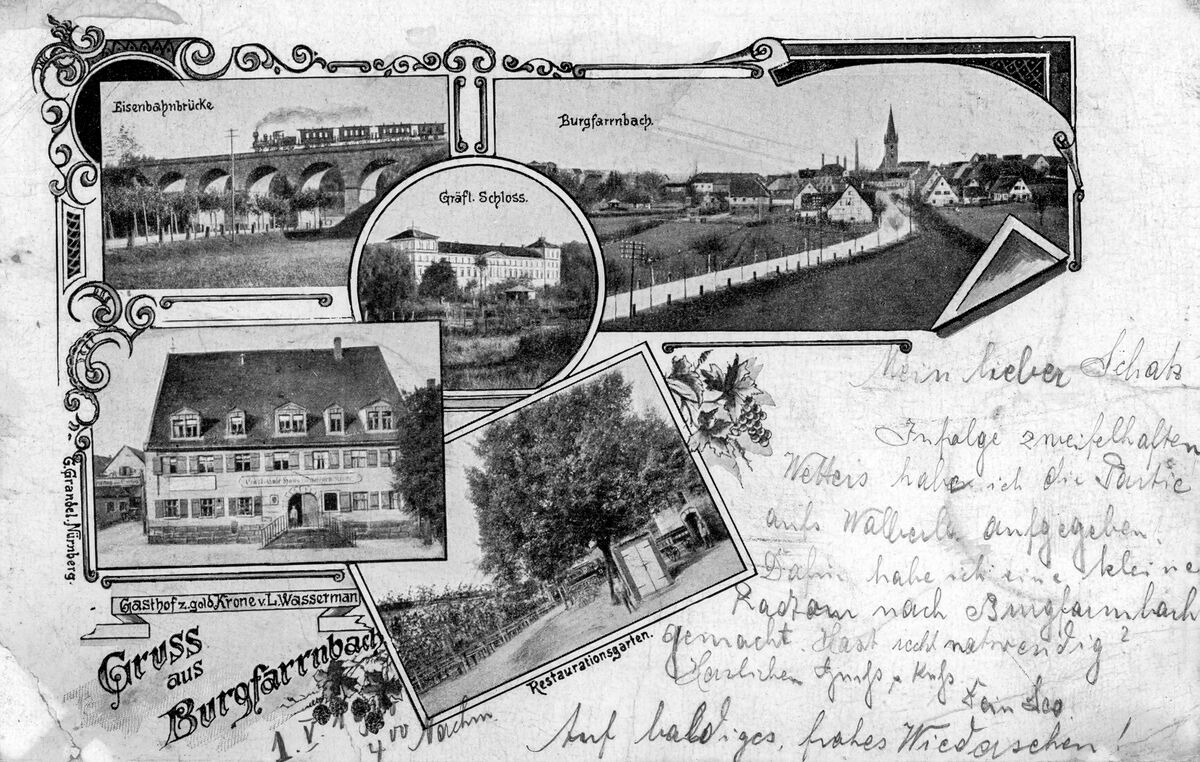 Eisenbahnbrücke
Burgfarrnbach.
Gräfl. Schloss.
Gasthof z. gold. Krone v. L. Wasserman
Restaurationsgarten.
G. Grandel. Nürnberg
Gruss
aus
Burgfarrnbach
1. V.
4 00 Nachm.
Mein lieber Schatz
Infolge zweifelhaften
Wetters habe ich die Partie
aufs Walberla aufgegeben.
Dafür habe ich eine kleine
Radtour nach Burgfarrnbach
gemacht. Hast recht notwendig?
Herzlichen Gruß u. Kuß.
Dein Leo.
Auf baldiges, frohes Wiedersehen!